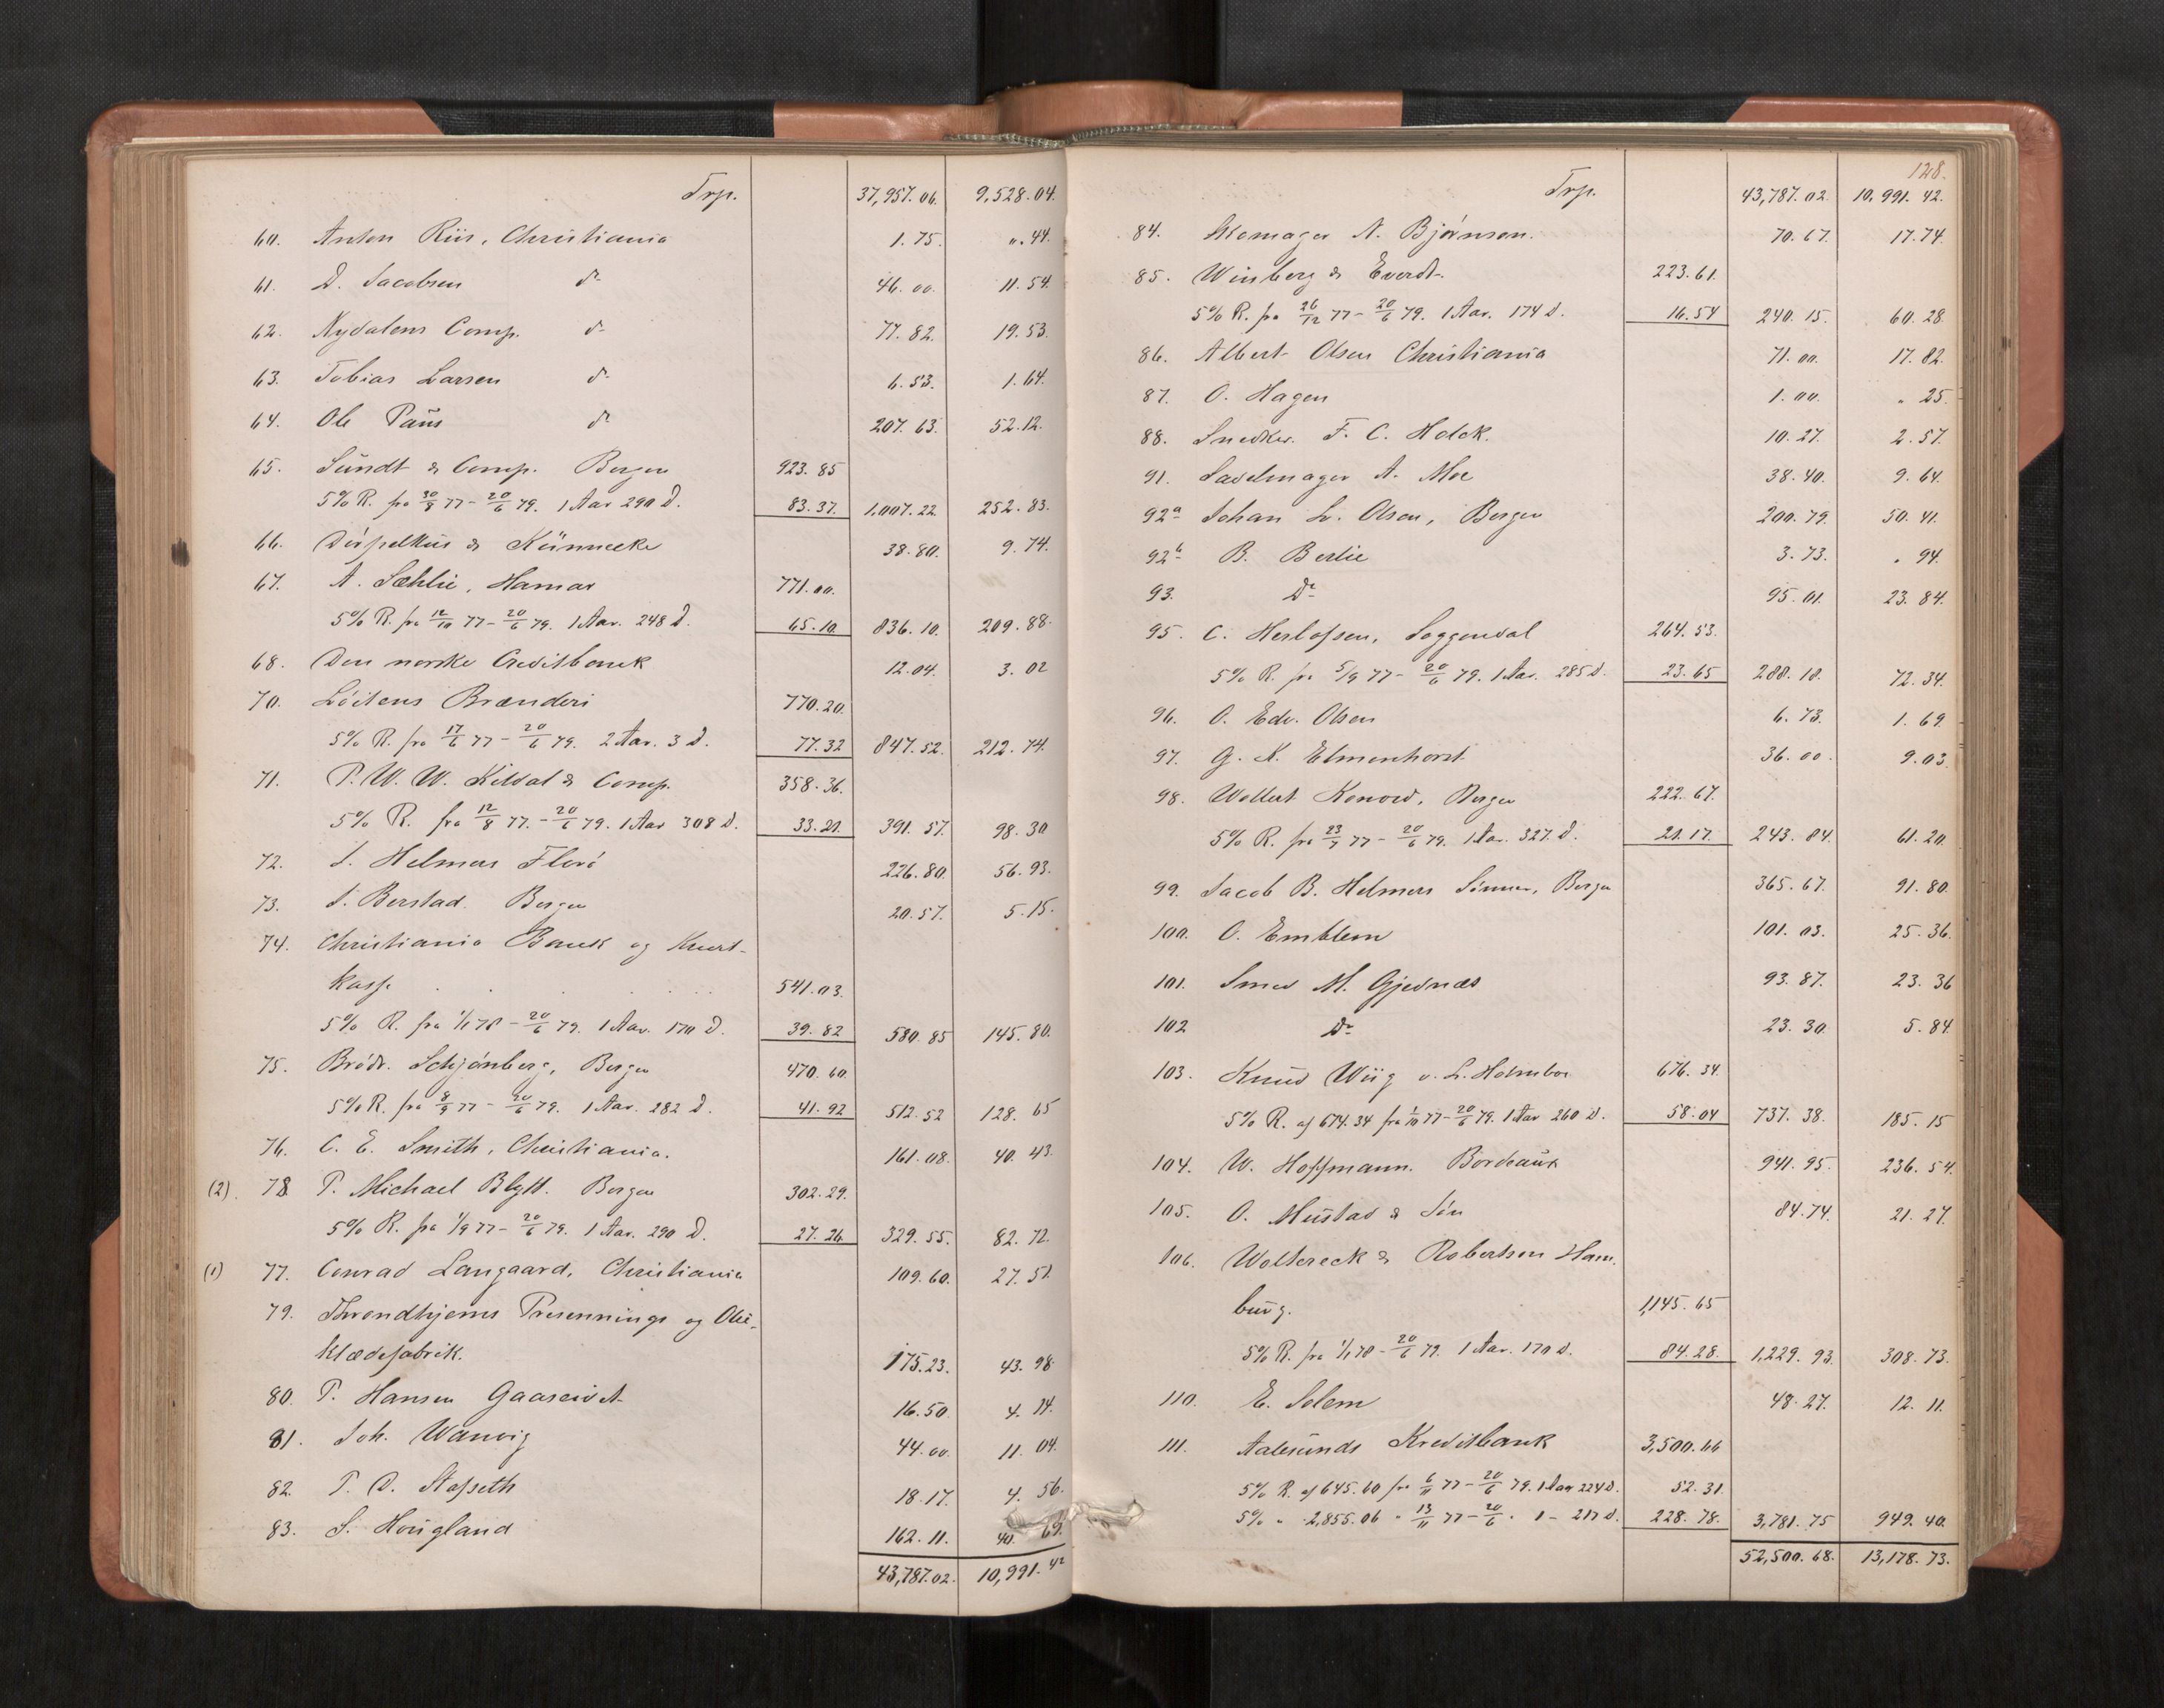 Trp. 37,957.06. 9,528.04.
60. Anton Riis, Christiania 1.75. ". 44.
61. D. Jacobsen do 46.00. 11.54.
62. Nydalens Comp. do 77.82. 19.53.
63. Tobias Larsen do 6.53. 1.64.
64. Ole Paus do 207.63. 52.12.
65. Sundt & Comp. Bergen 923.85
5% R. fra 30/8 77 - 20/6 79. 1 Aar 290 D. 83.37. 1,007.22. 252.83.
66. Dörpelkus & Künnecke 38.80. 9.74.
67. A. Sæhlie, Hamar 771.00.
5% R. fra 12/10 77 - 20/6 79. 1 Aar. 248 D. 65.10. 836.10. 209.88.
68. Den norske Creditbank 12.04. 3.02
70. Löitens Brænderi 770.20.
5% R. fra 17/6 77 - 20/6 79. 2 Aar. 3 D. 77.32 847.52. 212.74.
71. P. W. W. Kildal & Comp. 358.36.
5% R. fra 12/8 77. - 20/6 79. 1 Aar 308 D. 33.21. 391.57. 98.30
72. J. Helmers Florö 226.80. 56.93.
73. J. Berstad. Bergen 20.57. 5.15.
74. Christiania Bank og Kredit-
kasse . . . . . 541.03.
5% R. fra 1/1 78 - 20/6 79. 1 Aar. 170 D. 39.82 580.85 145.80.
75. Brödr. Schjönberg, Bergen 470.60.
5% R. fra 8/9 77 - 20/6 79. 1 Aar. 282 D. 41.92 512.52 128.65
76. C. E. Smith, Christiania. 161.08. 40.43.
(2). 78 P. Michael Blytt. Bergen 302.29.
5% R. fra 1/9 77 - 20/6 79. 1 Aar. 290 D. 27.26. 329.55. 82.72.
(1) 77. Conrad Langaard, Christiania 109.60. 27.51.
79. Throndhjems Presennings og Olie-
klædefabrik. 175.23. 43.98
80. P. Hansen Gaaseidet 16.50 4.14.
81. Joh. Wanvig 44.00. 11.04.
82. P. O. Stafseth 18.17. 4.56.
83. S. Hougland 162.11. 40.69.
43,787.02. 10,991.42
128.
Trp. 43,787.02. 10,991.42.
84. Skomager N. Björnsen. 70.67. 17.74.
85. Winberg & Everdt. 223.61.
5% R. fra 26/12 77 - 20/6 79. 1 Aar. 174 D. 16.54 240.15. 60.28
86. Albert Olsen Christiania 71.00. 17.82.
87. O. Hagen 1.00. " 25.
88. Snedker. F. C. Holck. 10.27. 2.57.
91. Sadelmager A. Moe 38.40. 9.64.
92a Johan Lr. Olsen, Bergen 200.79. 50.41.
92b B. Berlie 3.73. . 94.
93. Do 95.01. 23.84.
95. C. Herlofsen, Soggendal 264.53.
5% R. fra 5/9 77 - 20/6 79. 1 Aar. 285 D. 23.65 288.18. 72.34.
96. O. Edv. Olsen 6.73. 1.69.
97. G. K. Elmenhorst 36.00. 9.03.
98. Wollert Konow, Bergen 222.67.
5% R. fra 23/7 77 - 20/6 79. 1 Aar. 327. D. 21.17. 243.84. 61.20.
99. Jacob B. Helmers Sönner, Bergen 365.67. 91.80.
100. O. Emblem 101.03. 25.36.
101. Smed M. Gjednæs 93.87. 23.36
102 Do 23.30. 5.84.
103. Knud Wiig v. L. Holmboe 676.34.
5% R. af 674.34 fra 1/10 77 - 20/6 79. 1 Aar 260 D. 58.04 737.38. 185.15
104. W. Hoffmann. Bordeaux 941.95. 236.54.
105. O. Mustad & Sön 84.74. 21.27.
106. Woltereck & Robertson Ham-
burg. 1,145.65
5% R. fra 1/1 78 - 20/6 79. 1 Aar. 170 D. 84.28. 1,229.93. 308.73.
110. E. Solem 48.27. 12.11.
111. Aalesunds Kreditbank 3,500.66
5% R. af 645.60 fra 6/11 77 - 20/6 79. 1 Aar 224 D. 52.31.
5% " 2,855.06 " 13/11 77 - 20/6 " 1 - 217 D. 228.78. 3,781.75 949.40.
52,500.68. 13,178.73.